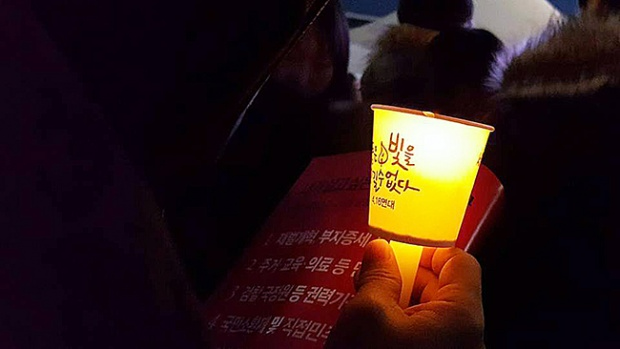 빛을
길수 없다
4.16연대
1. 재벌개혁, 부자증세
2. 주거·교육·의료 등
3 검찰 국정원 등 권력기
4 국민소환제 및 직접민